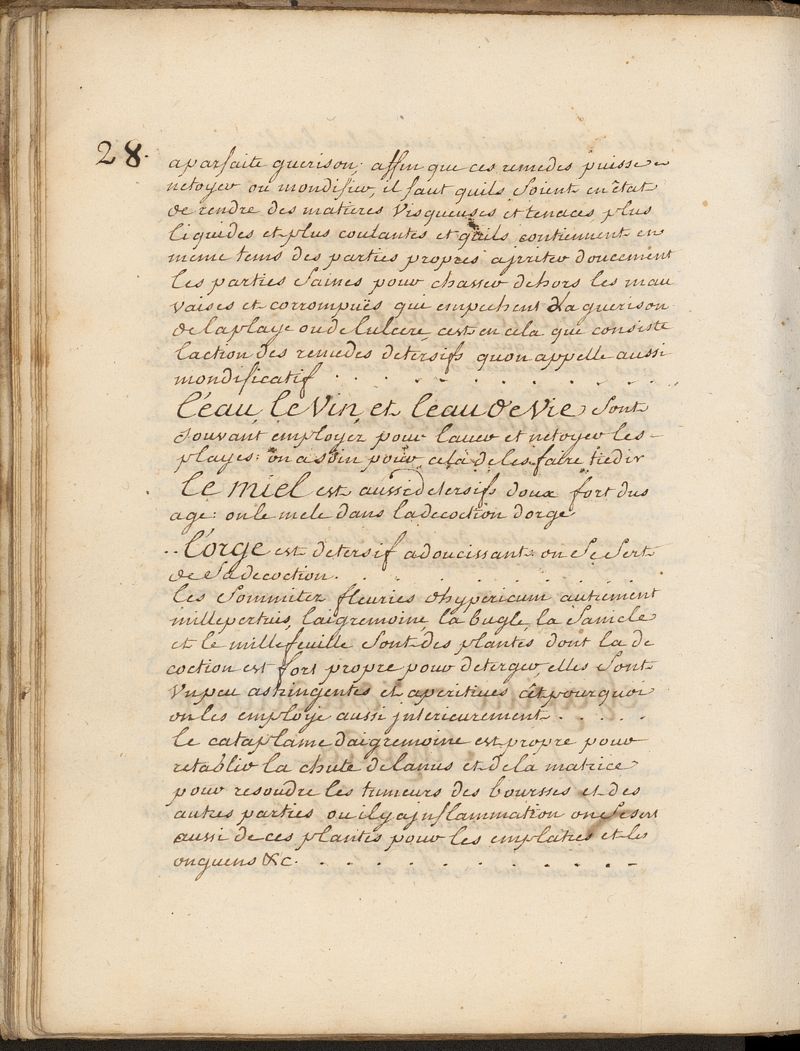 28.
aparfaite guerison; affin que ces remedes puisse
netoyer ou mondifier, il faut quils soient en état
de rendre des matieres visqueuses et tenaces plus
liquides et plus coulantes et quils contiennent en
meme tems des parties propres a jrriter doucement
les parties saines pour chasser dehors les mau
vaises et corrompuës qui empechent la guerison
de la playe ou de lulcere cest en cela que consiste
laction des remedes detersifs quon appelle aussi
mondificatif . . . . . . . . . .
l'eau, le vin, et l'eau de vie sont
souvant employez pour laver et netoyer les -
playes: on a soin pour cela de les faire tiedir
le miel est aussi detersifs doux fort dus
age: on le mele dans la decoction dorge
.. l'orge est detersif adoucissant on se sert
de sa decoction. . . . . . . .
les sommitez fleuries dhypericum autrement
millepertuis, laigremoine, la bugle, la sanicle
et le millefeuille sont des plantes dont la de
coction est fort propre pour deterger, elles sont
un peu astringentes et aperitives cest pourquoi
on les employe aussi jnterieurement . . . . .
le cataplame daigremoine est propre pour
retablir la chute de lanus et de la matrice
pour resoudre les tumeurs des boursses et des
autres parties ou il y a jnflammation on se sert
aussi de ces plantes pour les emplatres et les
onguens &c. . . . . . . . . . . . -